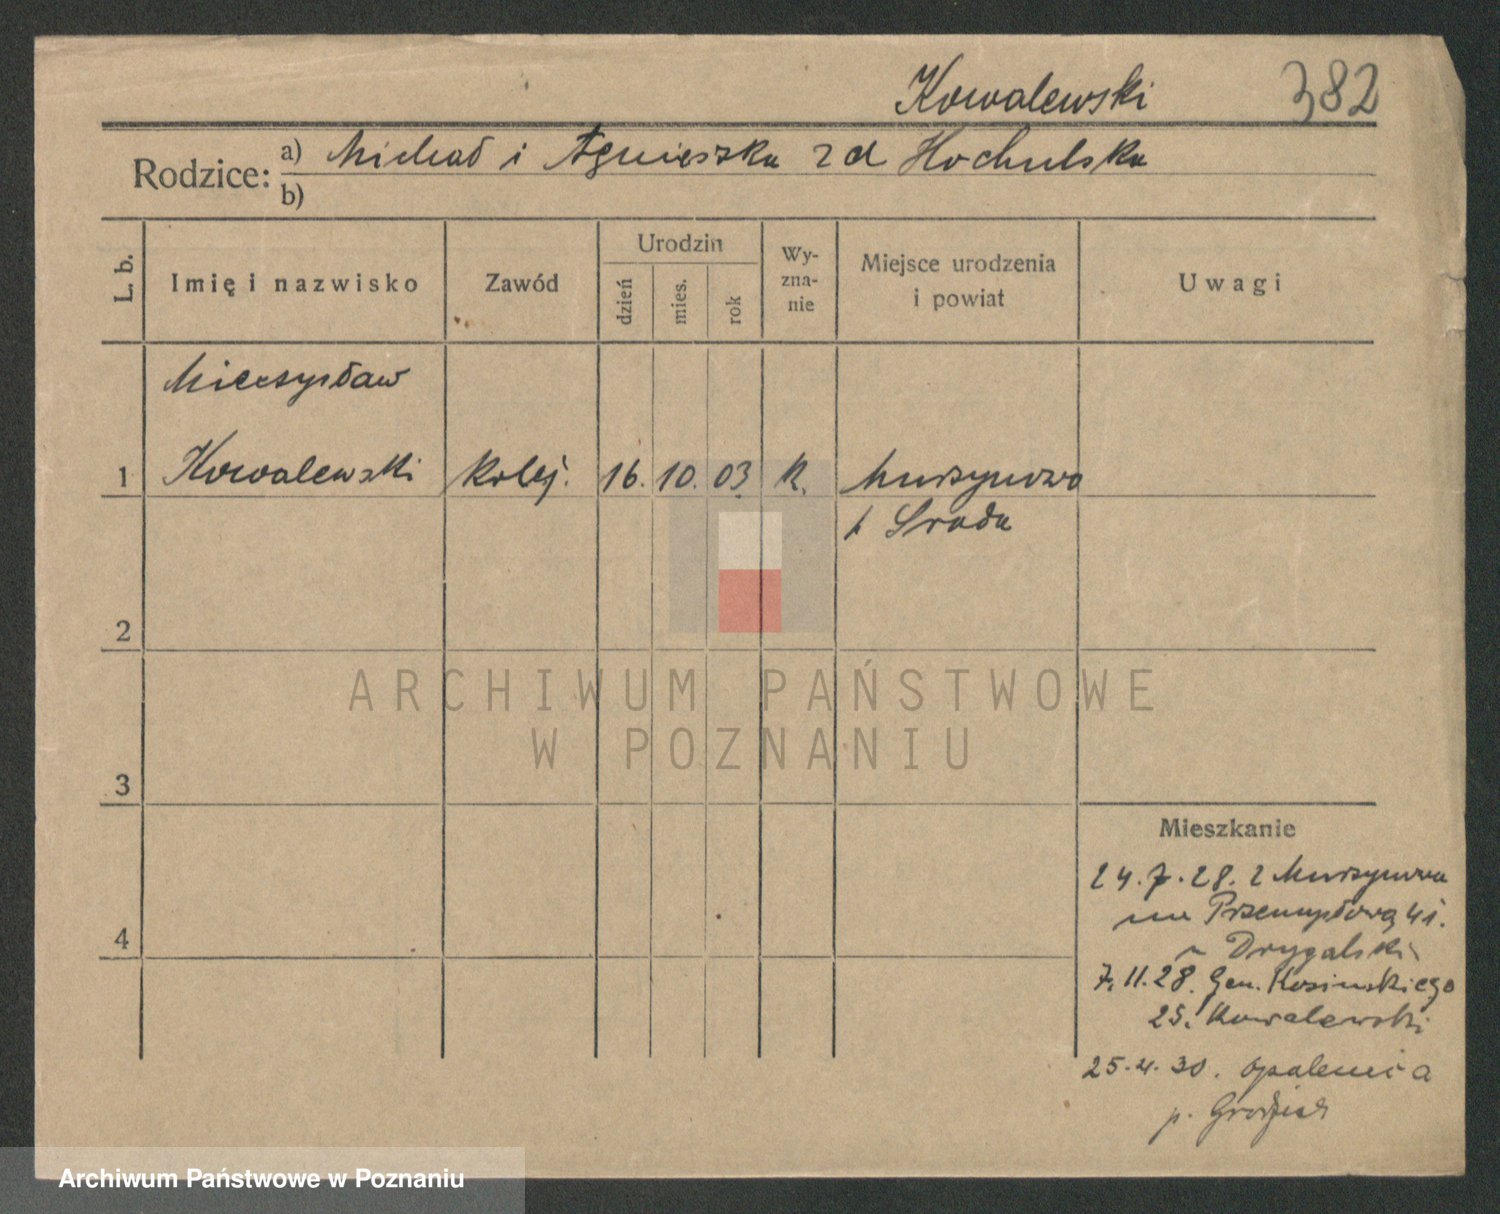 Kowalewski 382
Rodzice: a) Michał i Agnieszka zd Hochulska
b)
L. b.
Imię i nazwisko
Zawód
Urodzin
dzień
mies.
rok
Wy-
zna-
nie
Miejsce urodzenia
i powiat
Uwagi
Mieczysław
1 Kowalewski kolej. 16. 10. 03 K. Murzynowo
Sroda
2
3
4
Mieszkanie
24.7.28. z Murzynowa
Przemysłową 41.
Drygalski
7.11.28. Gen. Kosinskiego
25. Kowalewski
25.4.30. Opalenica
p. Grodzisk
ARCHIWUM PAŃSTWOWE
W POZNANIU
Archiwum Państwowe w Poznaniu